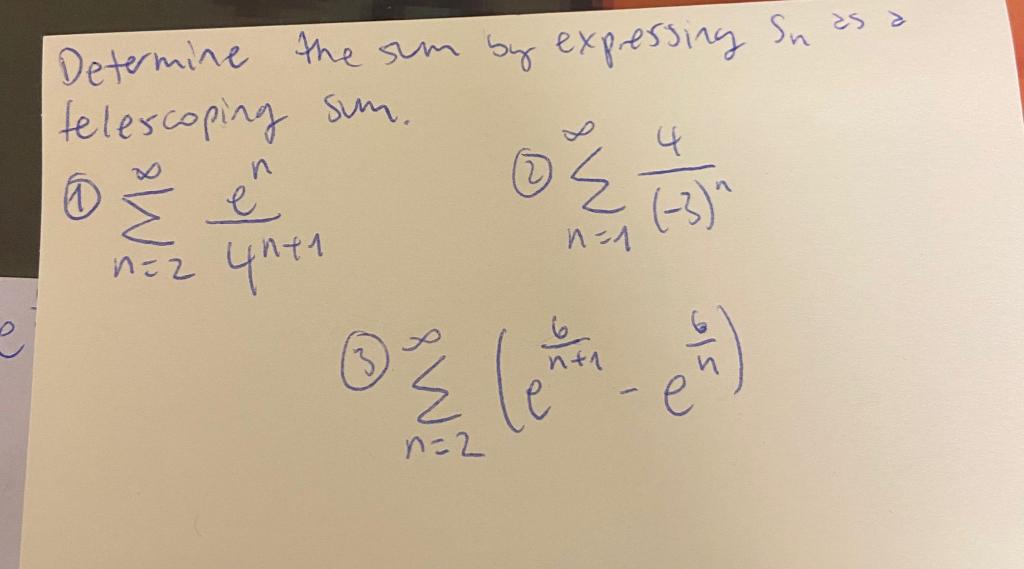 Determine the sum by expressing Sn as a
telescoping sum.
① ∞ ∑ n=2 e^n / 4^(n+1) ② ∞ ∑ n=1 4 / (-3)^n
③ ∞ ∑ n=2 (e^(6/(n+1)) - e^(6/n))
e